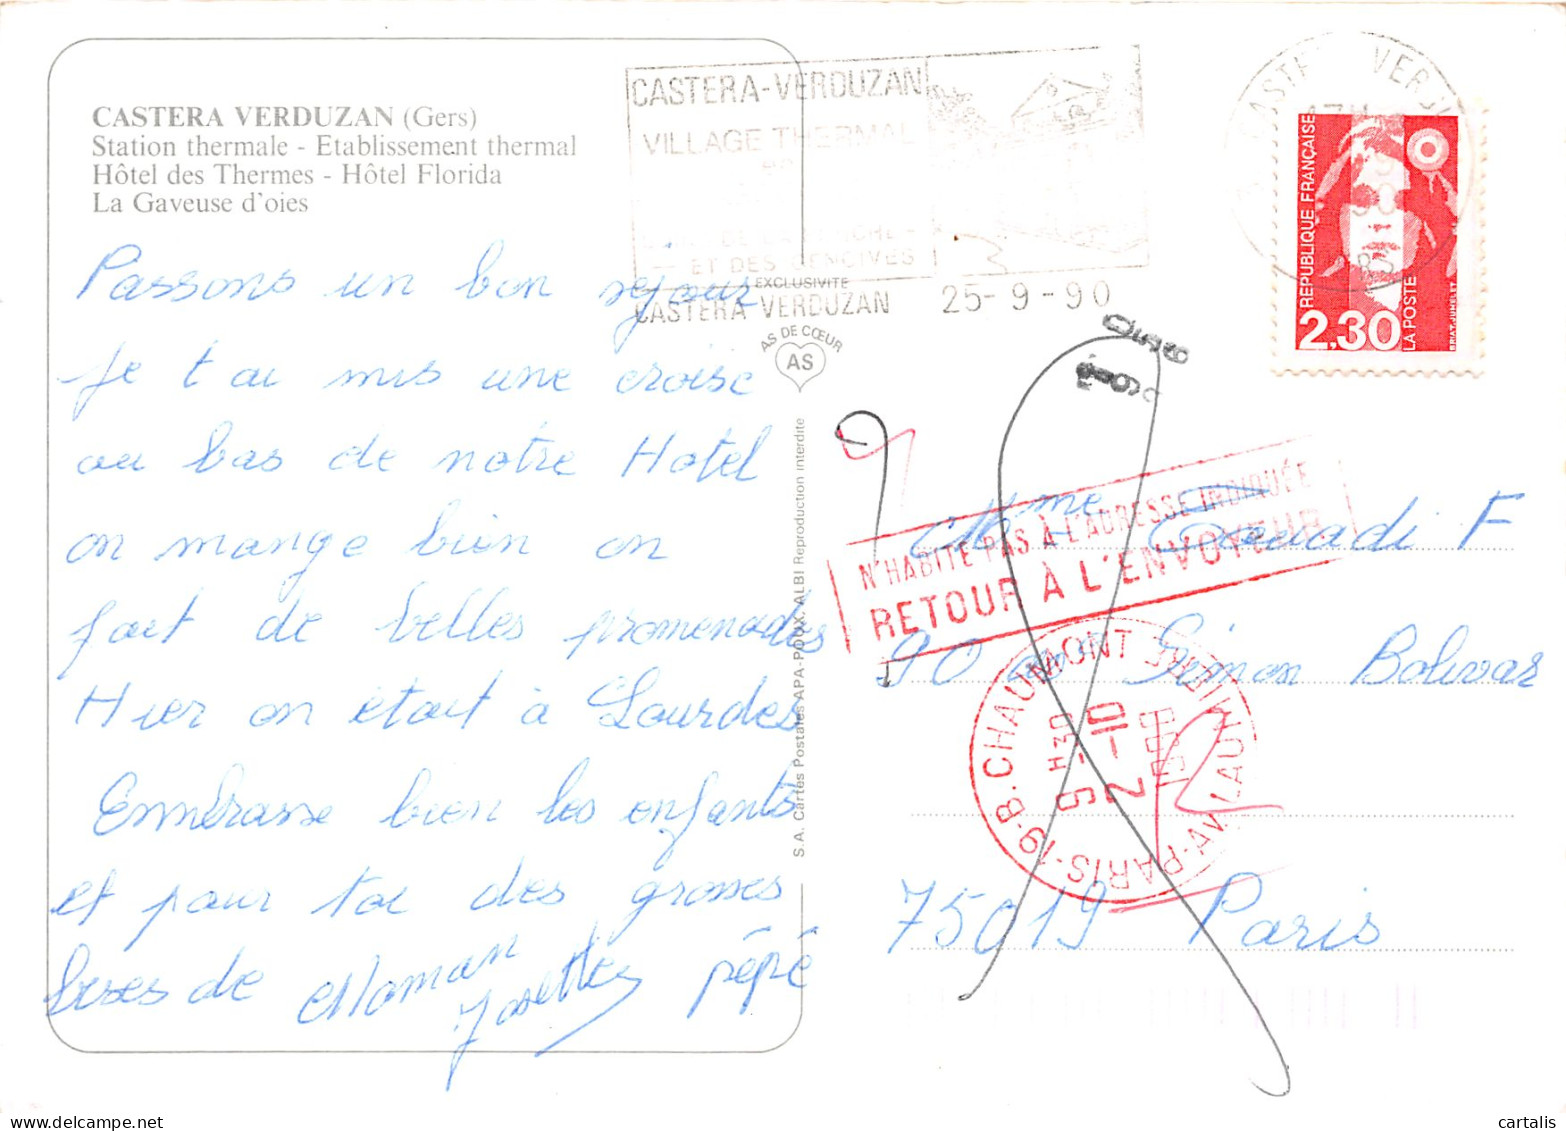 CASTERA VERDUZAN (Gers)
Station thermale - Etablissement thermal
Hôtel des Thermes - Hôtel Florida
La Gaveuse d'oies
Passons un bon séjour
Je t'ai mis une croise
au bas de notre Hotel
on mange bien on
fait de belles promenades
Hier on était à Lourdes
Embrasse bien les enfants
et pour toi des grosses
bises de Maman
Josette pépé
CASTERA-VERDUZAN
VILLAGE THERMAL
ET DES GENCIVES
CASTERA VERDUZAN 25-9-90
EXCLUSIVITE
AS DE CŒUR
AS
S.A. Cartes Postales APA-POUX. ALBI Reproduction interdite
REPUBLIQUE FRANÇAISE
2,30
LA POSTE
BRIAT-JUMELET
N'HABITE PAS À L'ADRESSE INDIQUÉE
RETOUR À L'ENVOYEUR
Mme F
90 av Simon Bolivar
75019 Paris
PARIS-19-B.CHAUMONT
2-10
1990
cartalis